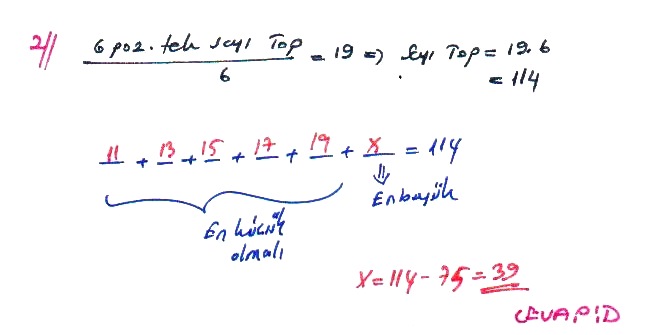 2// 6 poz. tek sayı Top / 6 = 19 => Sayı Top = 19.6
= 114
11 + 13 + 15 + 17 + 19 + x = 114
En küçük olmalı
⇓ En büyük
x = 114 - 75 = 39
CEVAP:D